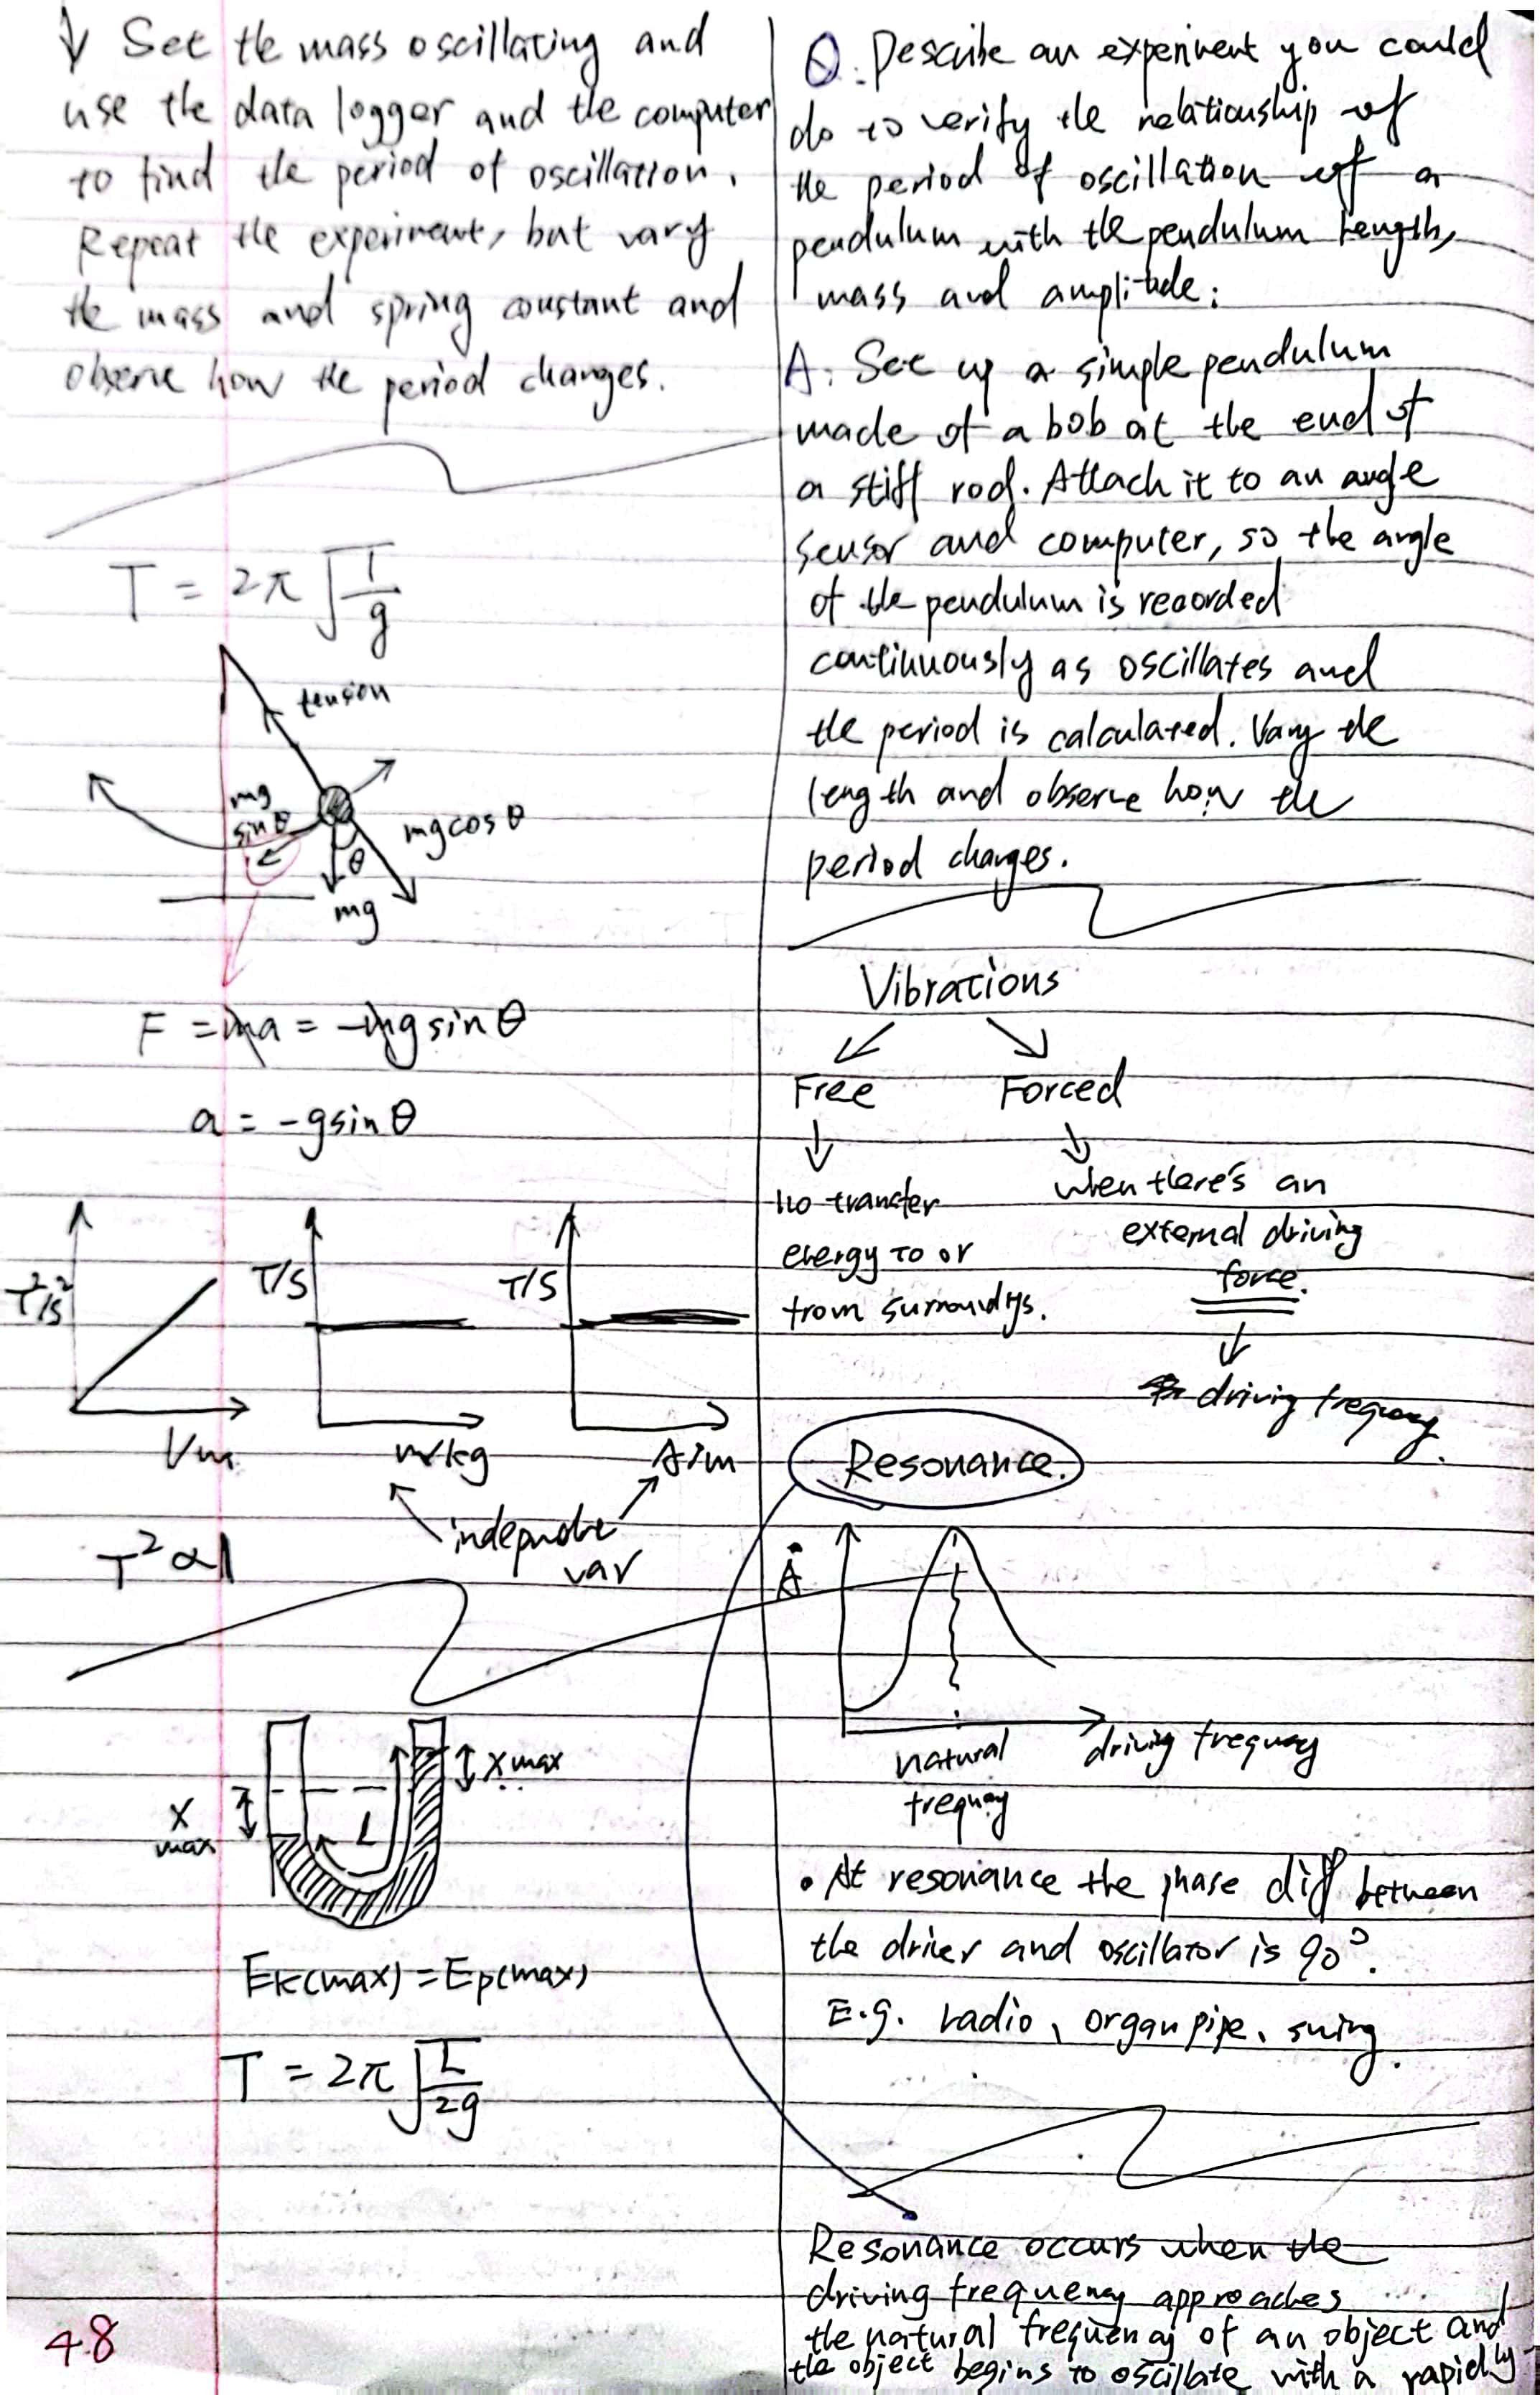 ↓ Set the mass oscillating and
use the data logger and the computer
to find the period of oscillation.
Repeat the experiment, but vary
the mass and spring constant and
observe how the period changes.
T = 2π √(l/g)
tension
mg
sinθ
mgcosθ
θ
mg
F = ma = -mgsinθ
a = -gsinθ
T²/s²
l/m
T/S
m/kg
T/S
A/m
var
T² ∝ l
x max
x
max
L
Ek(max) = Ep(max)
T = 2π √(L/2g)
48
Q. Describe an experiment you could
do to verify the relationship of
the period of oscillation of a
pendulum with the pendulum length,
mass and amplitude:
A. Set up a simple pendulum
made of a bob at the end of
a stiff rod. Attach it to an angle
sensor and computer, so the angle
of the pendulum is recorded
continuously as oscillates and
the period is calculated. Vary the
length and observe how the
period changes.
Vibrations
Free
Forced
no transfer
energy to or
from surroundys.
when there's an
external driving
force.
driving frequency.
Resonance.
A
natural
frequency
driving frequency
• At resonance the phase diff between
the driver and oscillator is 90°.
E.g. radio, organ pipe, swing.
Resonance occurs when the
driving frequency approaches
the natural frequency of an object and
the object begins to oscillate with a rapidly